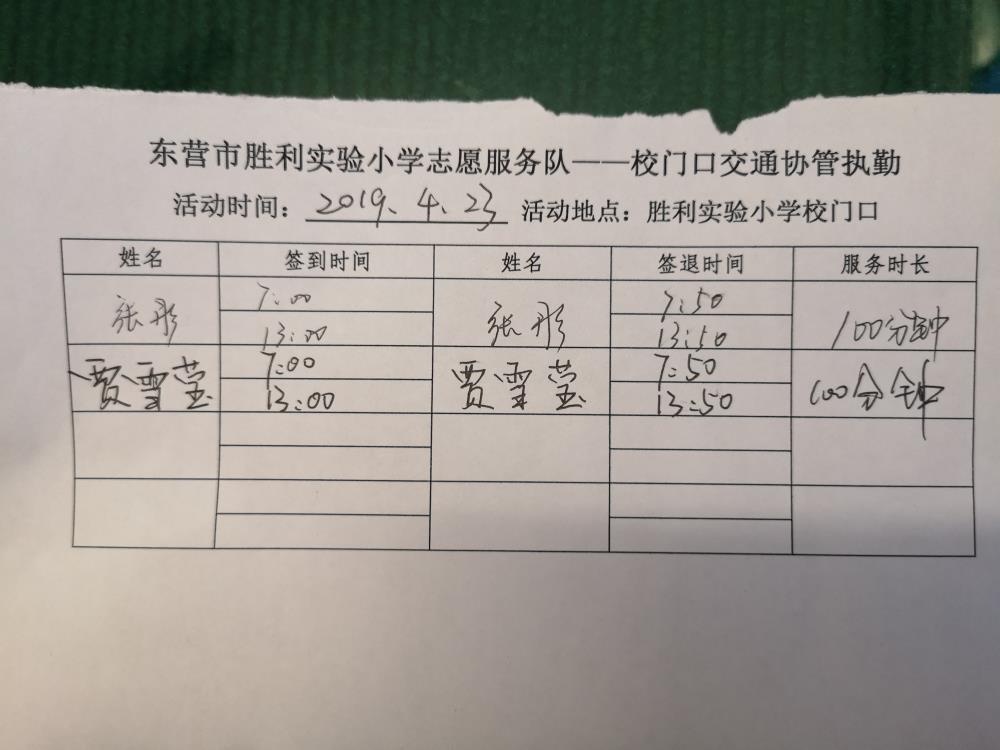 东营市胜利实验小学志愿服务队——校门口交通协管执勤
活动时间：2019、4、23 活动地点：胜利实验小学校门口
姓名 签到时间 姓名 签退时间 服务时长
张彤 7:00 张彤 7:50 100分钟
13:00 13:50
贾雪莹 7:00 贾雪莹 7:50 100分钟
13:00 13:50